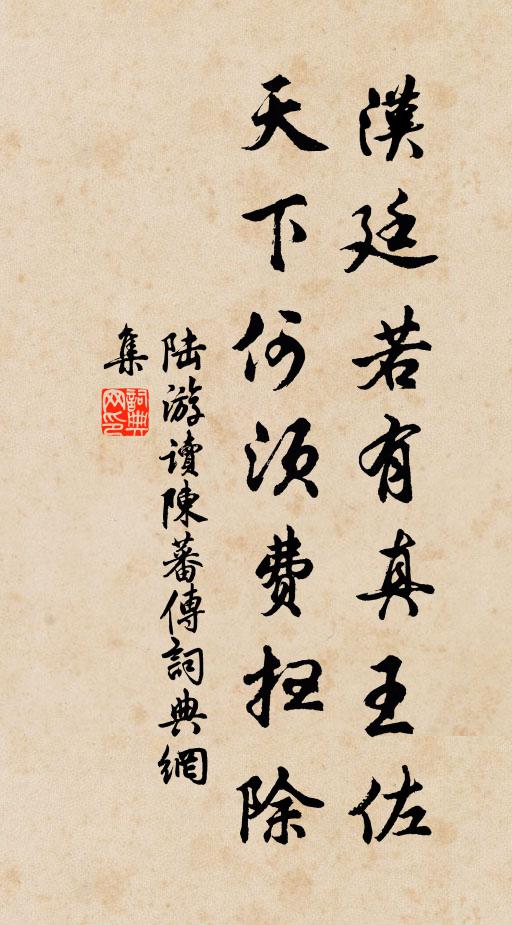 漢廷若有真王佐
天下何須費扫除
陆游讀陳蕃傳詞典網
集
詞典
网印